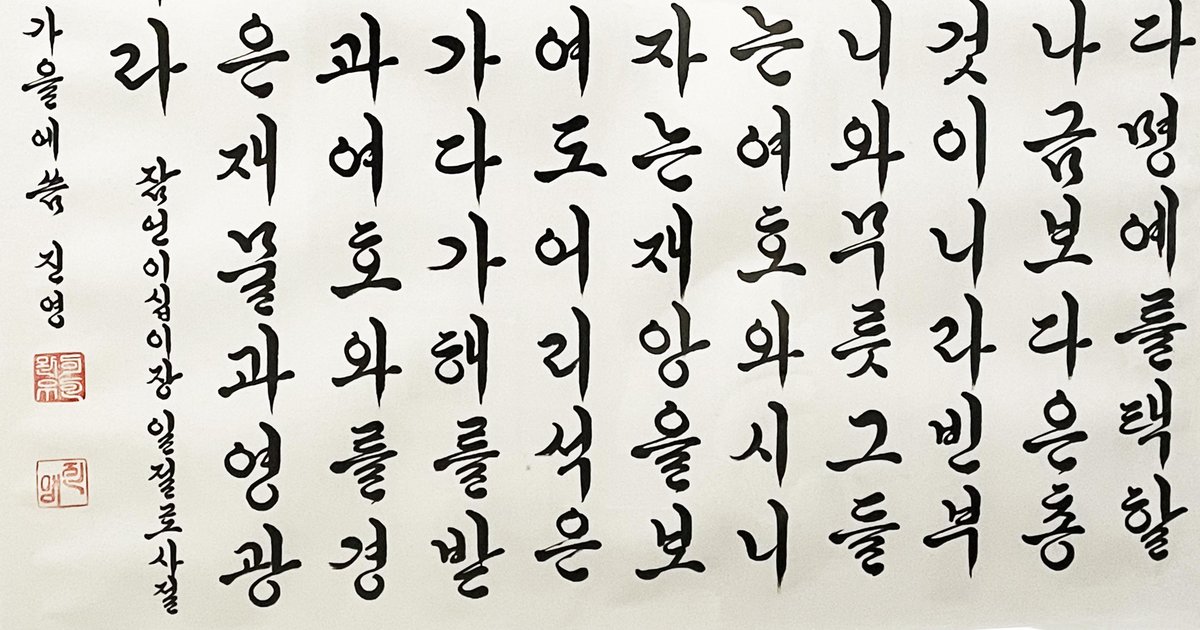 다명예를택할
나금보다은총
것이니라빈부
니와무릇그들
는여호와시니
자는재앙을보
여도어리석은
가다가해를받
과여호와를경
은재물과영광
라
잠언이십이장일절로사절
가을에씀 진영